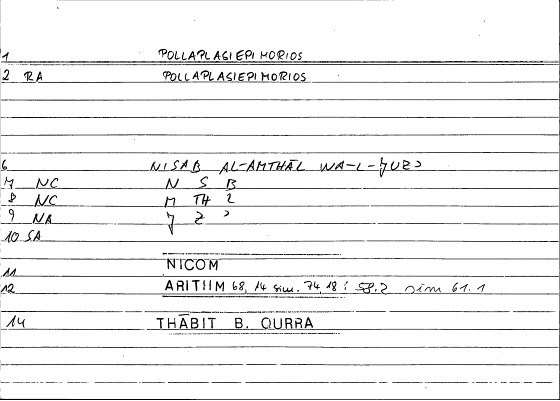 1 POLLAPLASIEPIMORIOS
2 RA POLLAPLASIEPIMORIOS
6 NISAB AL-AMTHĀL WA-L-ǦUZɔ
7 NC N S B
8 NC M TH L
9 NA Ǧ Z ɔ
10 SA
11 NICOM
12 ARITHM 68, 14 sim. 74, 18 : 58.2 sim 61.1
14 THĀBIT B. QURRA